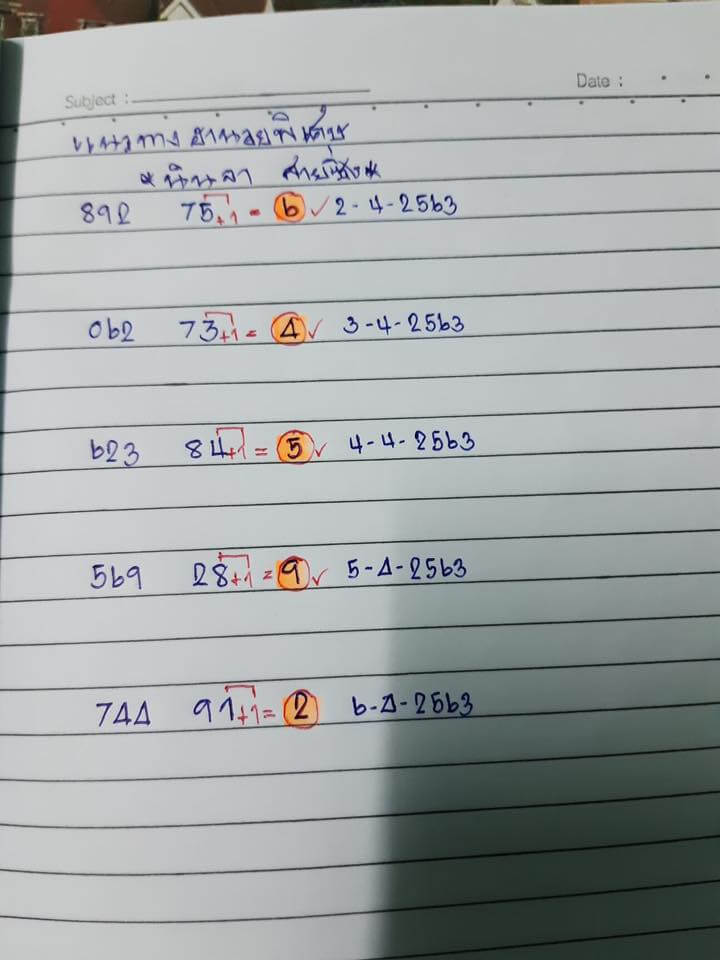 Subject : Date :
แนวทาง ฮานอยพิเศษ
* นินลา สายซิ่ง *
892 75+1 = 6 ✓ 2-4-2563
062 73+1 = 4 ✓ 3-4-2563
623 84+1 = 5 ✓ 4-4-2563
569 28+1 = 9 ✓ 5-4-2563
744 91+1 = 2 6-4-2563